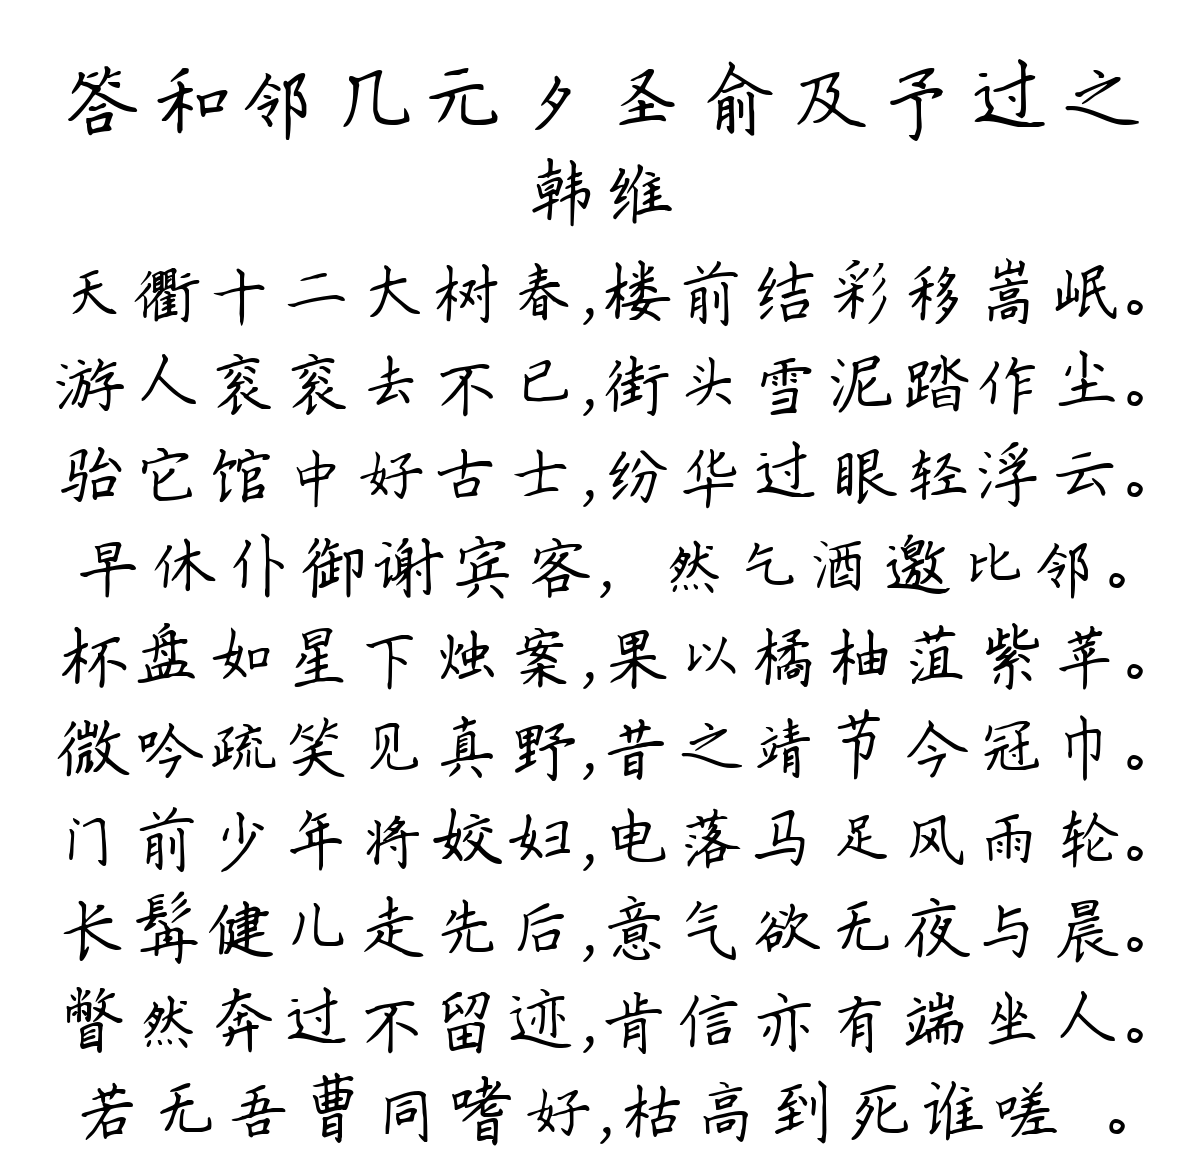 答和邻几元夕圣俞及予过之
韩维
天衢十二大树春,楼前结彩移嵩岷。
游人衮衮去不已,街头雪泥踏作尘。
骀它馆中好古士,纷华过眼轻浮云。
早休仆御谢宾客,然乞酒邀比邻。
杯盘如星下烛案,果以橘柚菹紫苹。
微吟疏笑见真野,昔之靖节今冠巾。
门前少年将姣妇,电落马足风雨轮。
长髯健儿走先后,意气欲无夜与晨。
瞥然奔过不留迹,肯信亦有端坐人。
若无吾曹同嗜好,枯高到死谁嗟 。